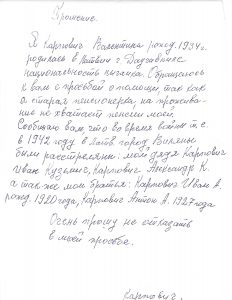 Прошение.
Я Карпович Валентина рожд. 1934 г.
родилась в Латвии г. Даугавпилс
национальность цыганка. Обращаюсь
к вам с просьбой о помощи, так как
я старая пенсионерка, на прожива-
ние не хватает пенсии моей.
Сообщаю вам, что во время войны т. е.
в 1942 году в Латв город Виляны
были расстреляны: мой дядя Карпович
Иван Кузьмич, Карпович Александр К.
а так же мои братья: Карпович Иван А.
рожд. 1920 года, Карпович Антон А. 1927 года
Очень прошу не отказать
в моей просьбе.
Карпович.